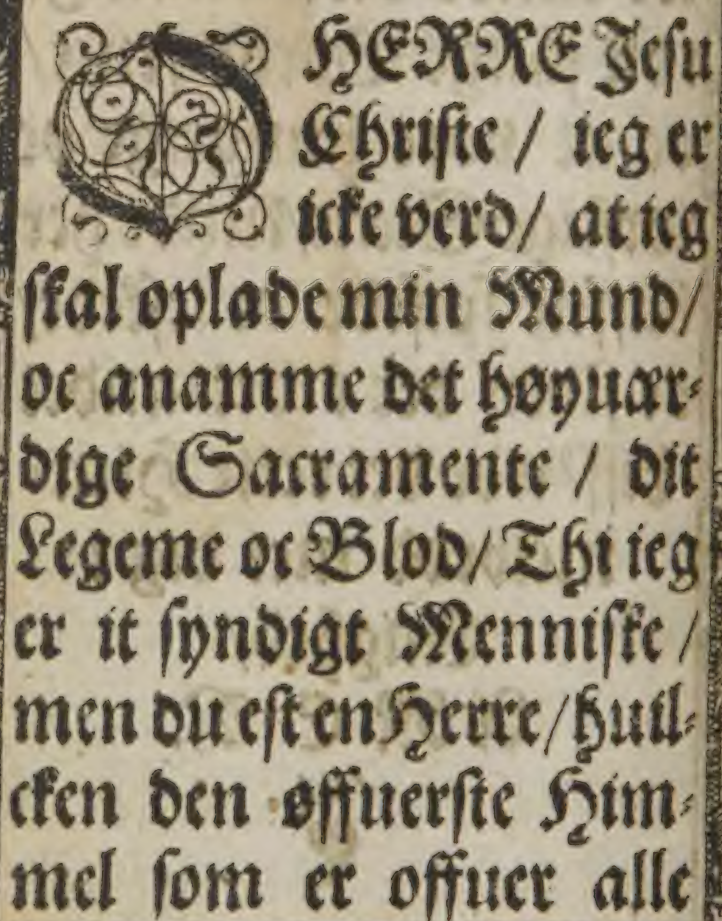 O HERRE Jesu
Christe / ieg er
icke verd / at ieg
skal oplade min Mund /
oc anamme det høyuær-
dige Sacramente / dit
Legeme oc Blod / Thi ieg
er it syndigt Menniske /
men du est en Herre / huil-
cken den øffuerste Him-
mel som er offuer alle